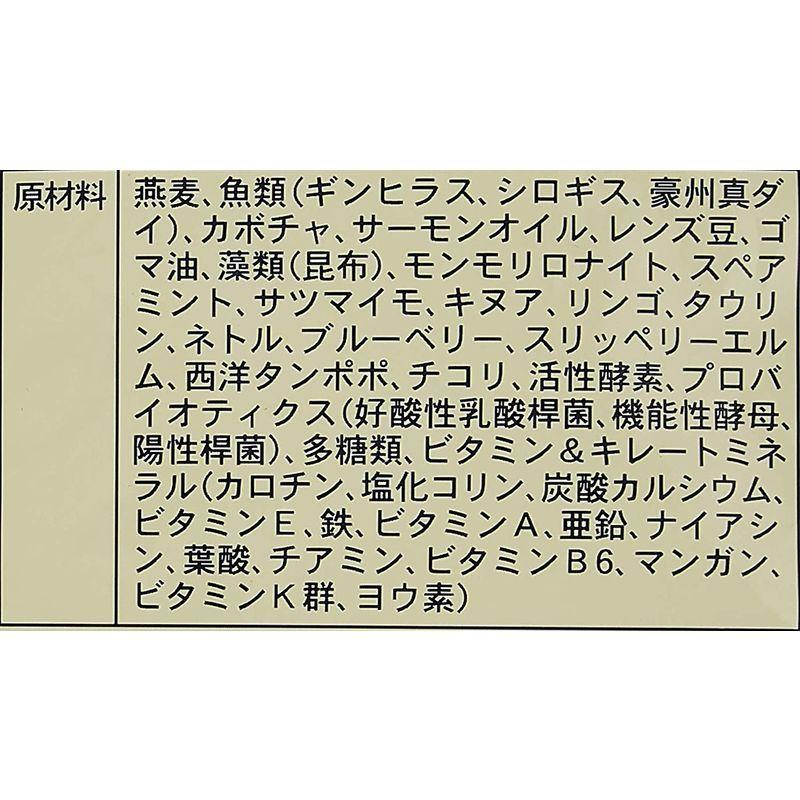 原材料
燕麦、魚類（ギンヒラス、シロギス、豪州真ダ
イ）、カボチャ、サーモンオイル、レンズ豆、ゴ
マ油、藻類（昆布）、モンモリロナイト、スペア
ミント、サツマイモ、キヌア、リンゴ、タウリ
ン、ネトル、ブルーベリー、スリッペリーエル
ム、西洋タンポポ、チコリ、活性酵素、プロバ
イオティクス（好酸性乳酸桿菌、機能性酵母、
陽性桿菌）、多糖類、ビタミン＆キレートミネ
ラル（カロチン、塩化コリン、炭酸カルシウム、
ビタミンE、鉄、ビタミンA、亜鉛、ナイアシ
ン、葉酸、チアミン、ビタミンB6、マンガン、
ビタミンK群、ヨウ素）